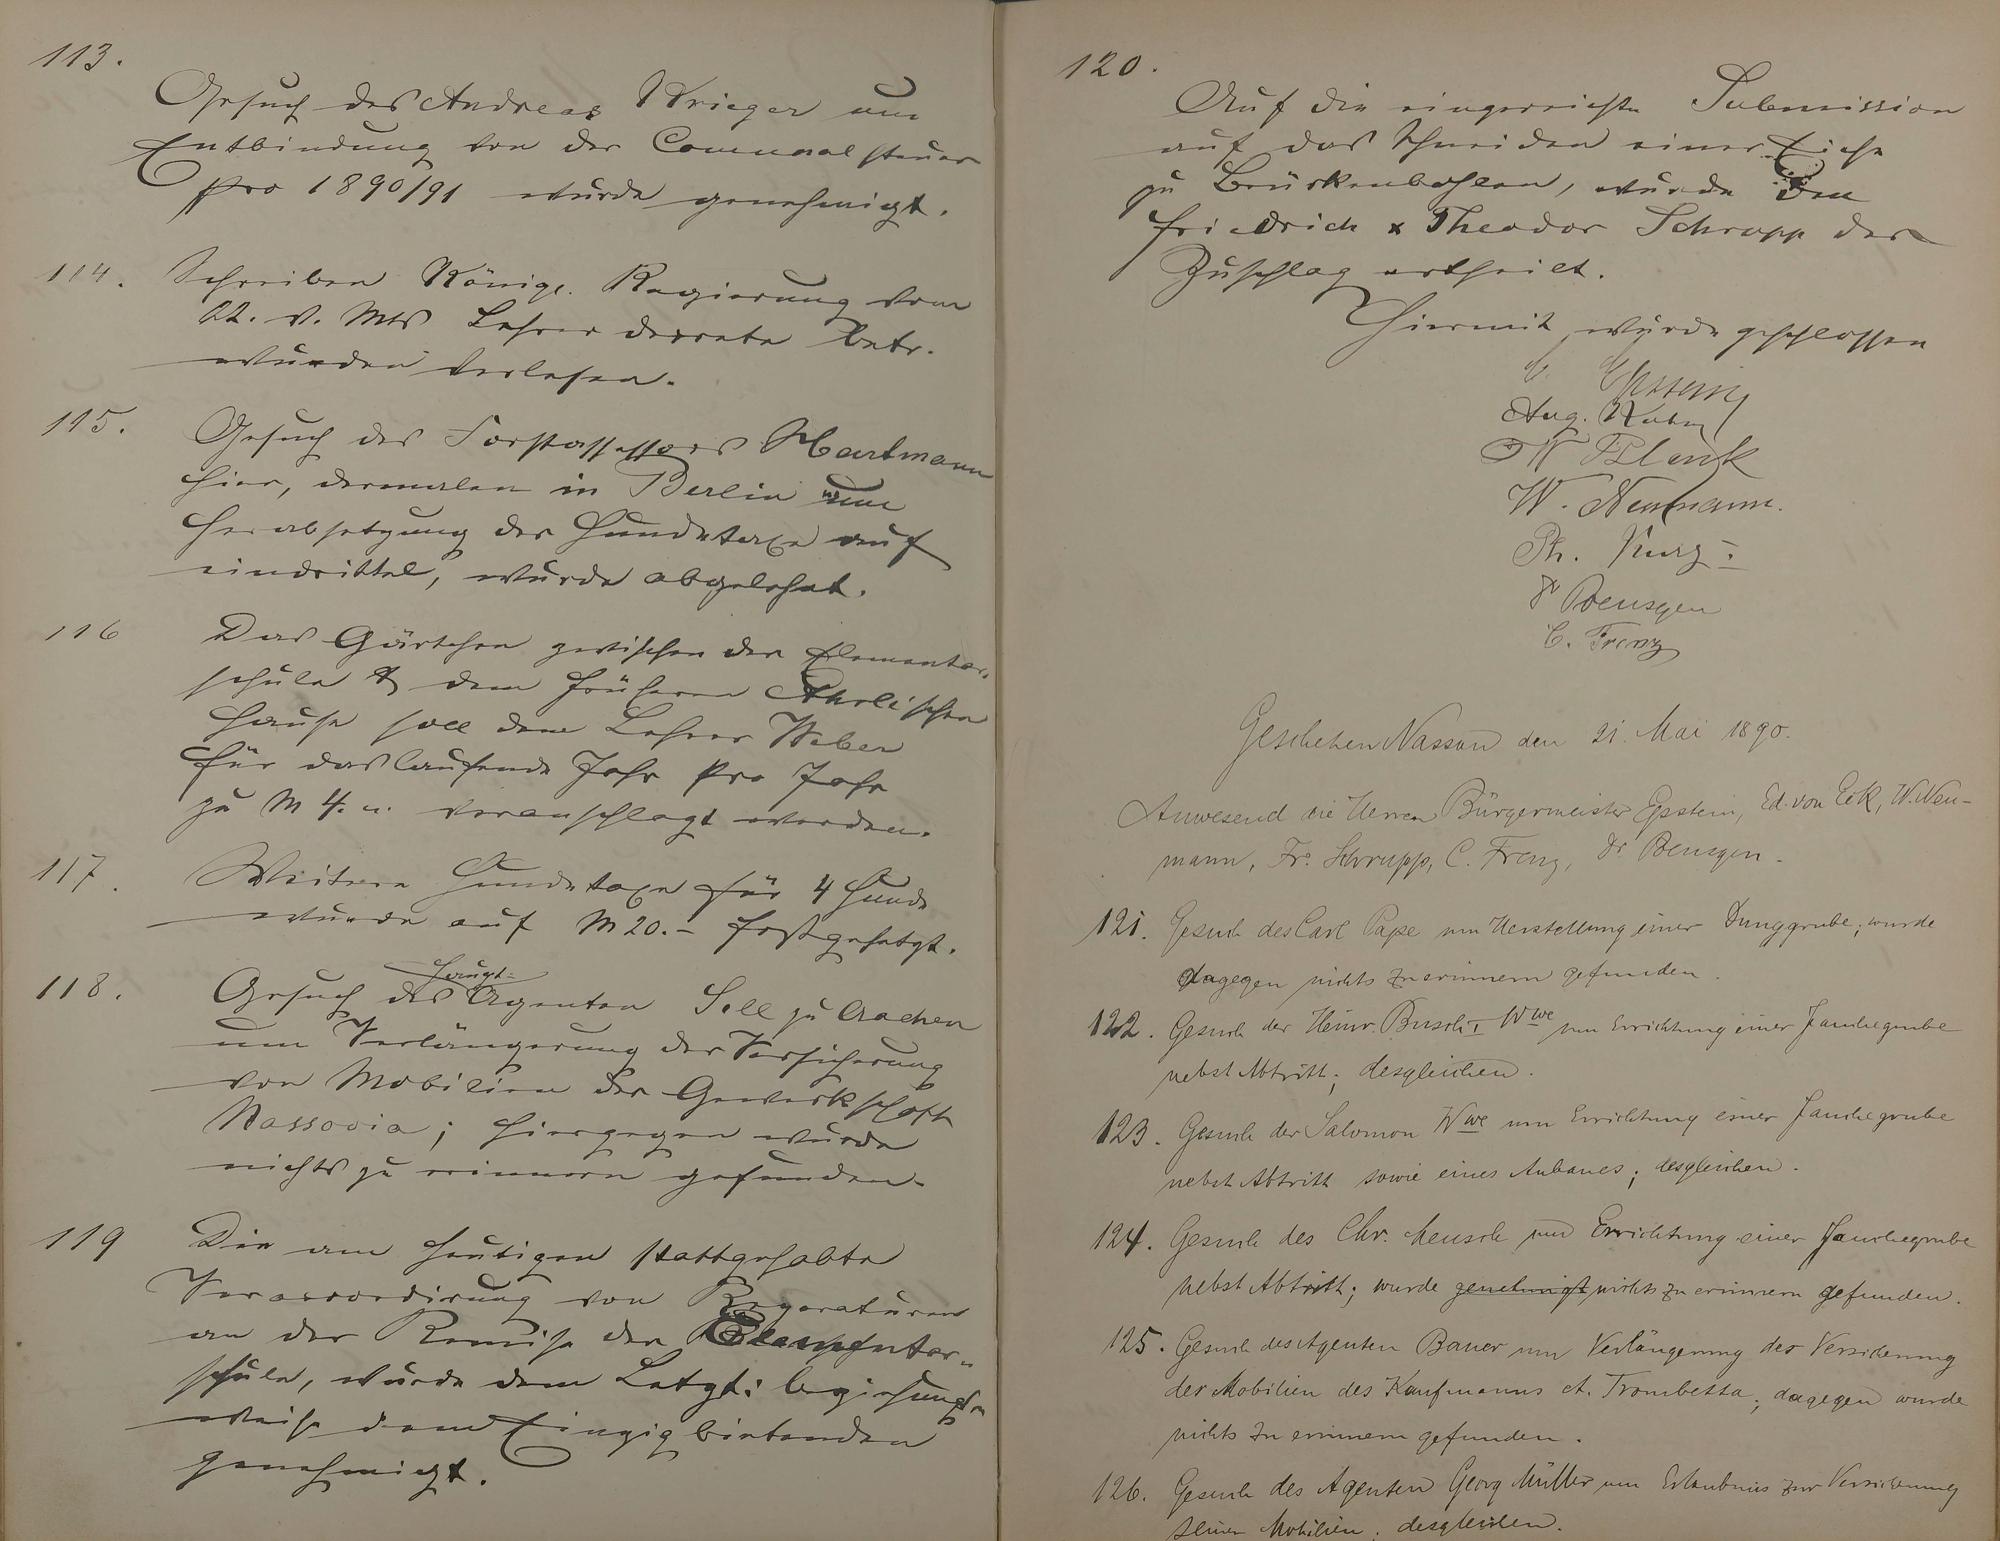 113.
Gesuch des Andreas Krieger um
Entbindung von der Communalsteuer
pro 1890/91 wurde genehmigt.
114. Schreiben Königl. Regierung vom
22. v. Mts Lehrer betr.
wurden verlesen.
115. Gesuch des Forstassessors Hartmann
hier, dermalen in Berlin um
Herabsetzung der Hundetaxe auf
eindrittel, wurde abgelehnt.
116 Das Gärtchen zwischen der Elementar-
schule & dem früheren
Hause soll dem Lehrer Weber
für das laufende Jahr pro Jahr
zu M 4. veranschlagt werden.
117. Weitere Hundetaxe für 4 Hunde
wurde auf M 20.- festgesetzt.
118. Gesuch des Haupt-Agenten Sell zu Aachen
um Verlängerung der Versicherung
von Mobilien der Gewerkschaft
Nassovia; hiergegen wurde
nichts zu erinnern gefunden.
119 Die am heutigen stattgehabte
Veraccordirung von Reparaturen
an der Remise der Elementar-
schule, wurde dem Letzt: beziehungs-
weise dem Einzigbietenden
genehmigt.
120.
Auf die eingereichte Submission
auf das Schneiden einer Eiche
zu Brückenbohlen, wurde den
Friedrich & Theodor Schrupp der
Zuschlag ertheilt.
Hiermit wurde geschlossen
Epstein
Aug. Kuhn
W Blank
W. Neumann.
Ph. Kurz I.
Dr Poensgen
C. Frenz
Geschehen Nassau den 21. Mai 1890.
Anwesend die Herren Bürgermeister Epstein, Ed. von Eck, W. Neu-
mann, Fr. Schrupp, C. Frenz, Dr Poensgen.
121. Gesuch des Carl Pape um Herstellung einer Dunggrube; wurde
dagegen nichts zu erinnern gefunden.
122. Gesuch der Heinr. Busch I Wwe um Errichtung einer Jauchegrube
nebst Abtritt; desgleichen.
123. Gesuch der Salomon Wwe um Errichtung einer Jauchegrube
nebst Abtritt sowie eines Anbaues; desgleichen.
124. Gesuch des Chr. Meusch um Errichtung einer Jauchegrube
nebst Abtritt; wurde genehmigt nichts zu erinnern gefunden.
125. Gesuch des Agenten Bauer um Verlängerung der Versicherung
der Mobilien des Kaufmanns A. Trombetta; dagegen wurde
nichts zu erinnern gefunden.
126. Gesuch des Agenten Georg Müller um Erlaubnis zur Versicherung
seiner Mobilien; desgleichen.